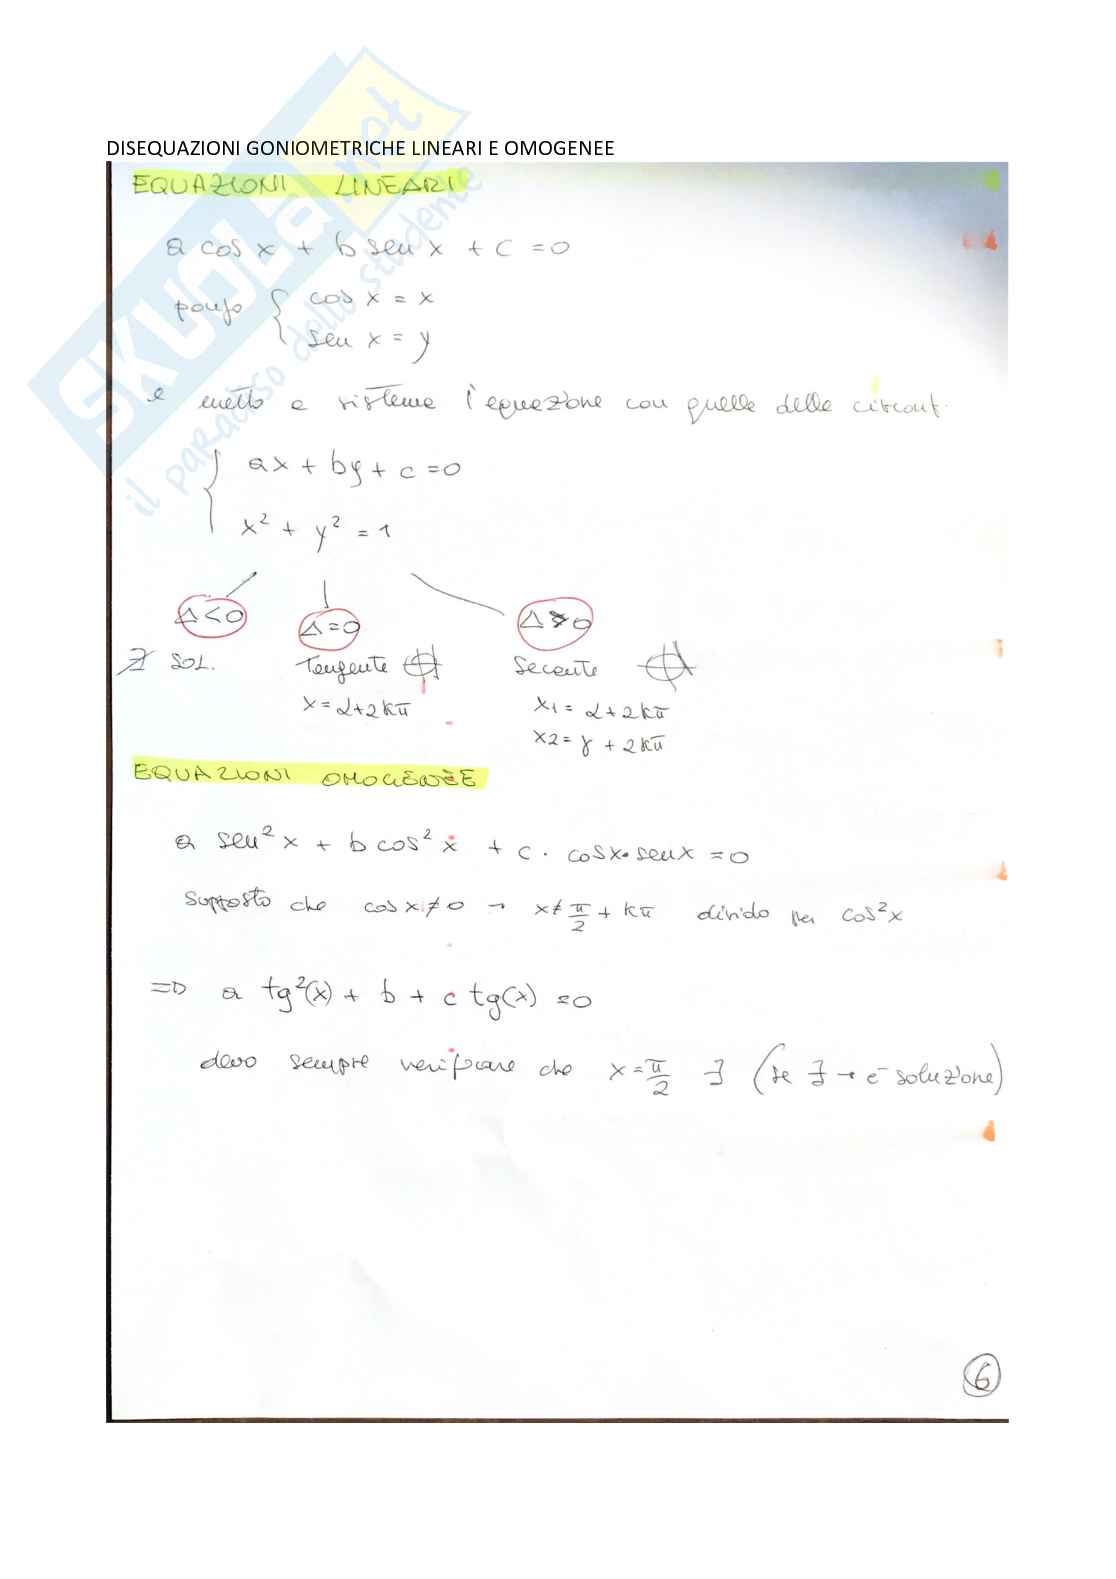 SKUOLA.net
il paradiso dello studente
DISEQUAZIONI GONIOMETRICHE LINEARI E OMOGENEE
EQUAZIONI LINEARI
a cos x + b sen x + c = 0
pongo { cos x = x
sen x = y
e metto a sistema l'equazione con quella della circonf.
{ ax + by + c = 0
x² + y² = 1
Δ<0 Δ=0 Δ>0
∄ SOL. Tangente Secante
x = α+2kπ x1 = α+2kπ
x2 = γ + 2kπ
EQUAZIONI OMOGENEE
a sen² x + b cos² x + c · cosx·senx = 0
Supposto che cos x ≠ 0 → x ≠ π/2 + kπ divido per cos²x
=D a tg²(x) + b + c tg(x) = 0
devo sempre verificare che x = π/2 ∃ (se ∃ → è soluzione)
6